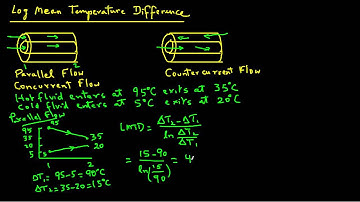 Log Mean Temperature Difference
1 2
Parallel Flow
Concurrent Flow
Countercurrent Flow
Hot fluid enters at 95°C exits at 35°C
Cold fluid enters at 5°C exits at 20°C
Parallel Flow
95
95
35
20
5
5
35
20
1 2
ΔT₁ = 95-5 = 90°C
ΔT₂ = 35-20 = 15°C
LMTD = (ΔT₂ - ΔT₁) / ln (ΔT₂/ΔT₁)
= (15-90) / ln(15/90) = 4